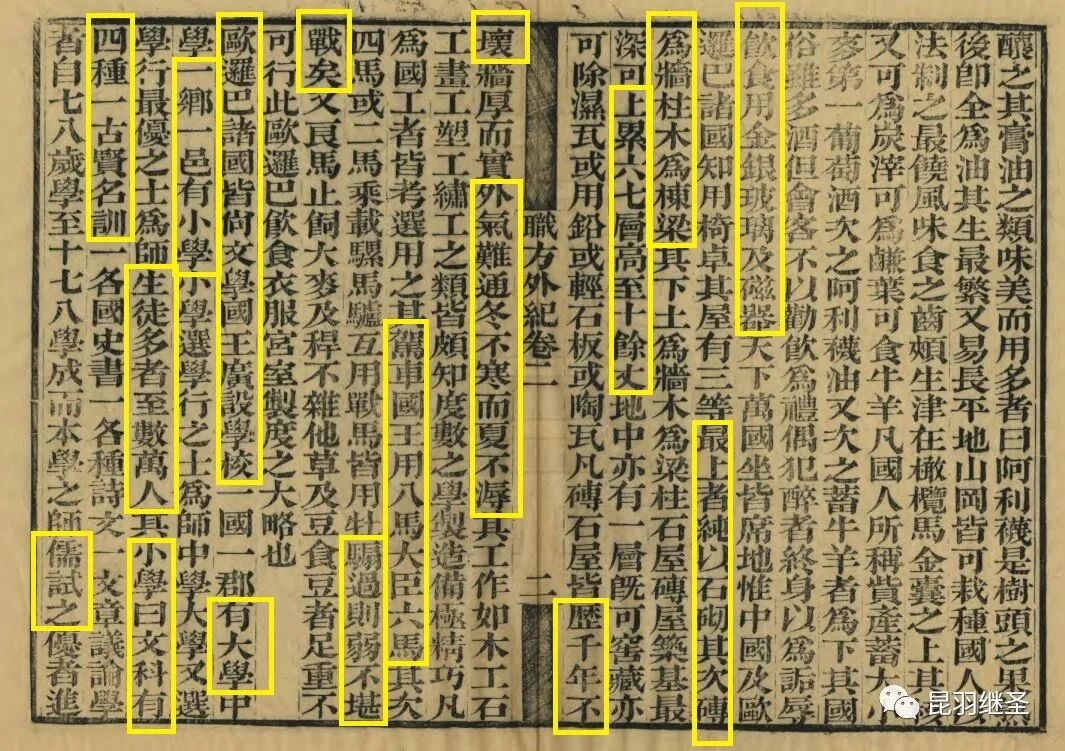 釀之其膏油之類味美而用多者曰阿利襪是樹頭之果
後卽全為油其生最繁又易長平地山岡皆可栽種國人
法制之最饒風味食之齒頰生津在橄欖馬金囊之上其核
又可為炭滓可為鹻葉可食牛羊凡國人所稱貲產蓄大小
麥第一葡萄酒次之阿利襪油又次之蓄牛羊者為下其國
俗雖多酒但會客不以勸飲為禮偶犯醉者終身以為詬辱
飲食用金銀玻璃及磁器天下萬國坐皆席地惟中國及歐
邏巴諸國知用椅卓其屋有三等最上者純以石砌其次磚
為牆柱木為棟梁其下土為牆木為梁柱石屋磚屋築基最
深可上累六七層高至十餘丈地中亦有一層旣可窖藏亦
可除濕瓦或用鉛或輕石板或陶瓦凡磚石屋皆歷千年不
職方外紀卷二 二
壞牆厚而實外氣難通冬不寒而夏不溽其工作如木工石
工畫工塑工繡工之類皆頗知度數之學製造備極精巧凡
為國工者皆考選用之其駕車國王用八馬大臣六馬其次
四馬或二馬乘載騾馬驢互用戰馬皆用牡騸過則弱不堪
戰矣又良馬止飼大麥及稈不雜他草及豆食豆者足重不
可行此歐邏巴飲食衣服宮室製度之大略也
歐邏巴諸國皆尚文學國王廣設學校一國一郡有大學中
學一鄉一邑有小學小學選學行之士為師中學大學又選
學行最優之士為師生徒多者至數萬人其小學曰文科有
四種一古賢名訓一各國史書一各種詩文一文章議論學
者自七八歲學至十七八學成而本學之師儒試之優者進
昆羽继圣